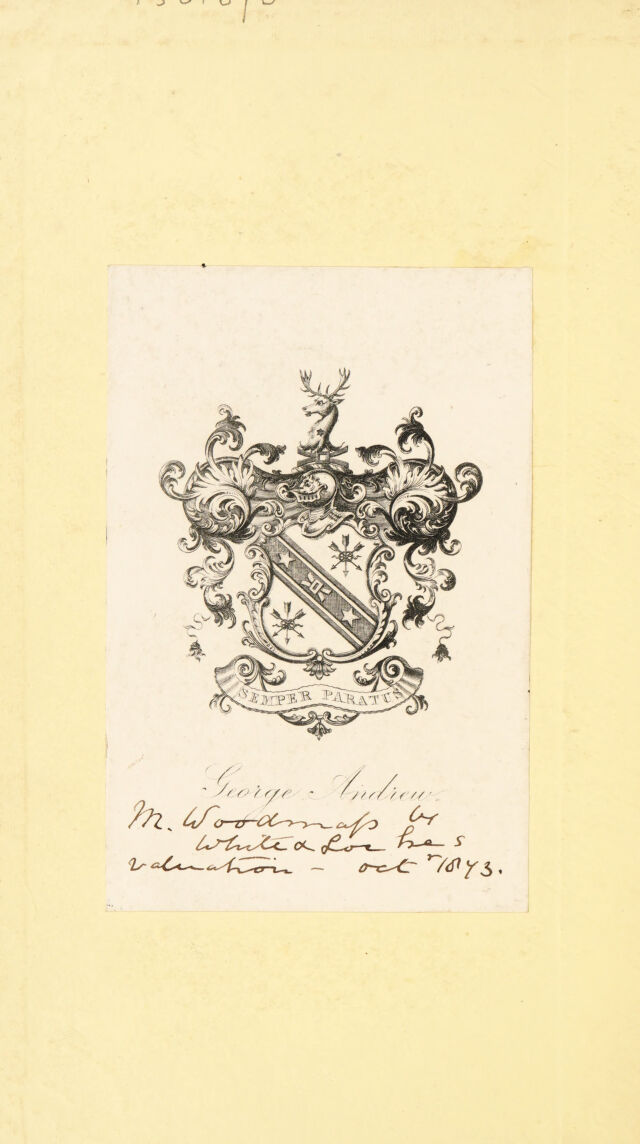 SEMPER PARATUS
George Andrew.
M. Woodmass by
White &
valuation – Octr 1873.